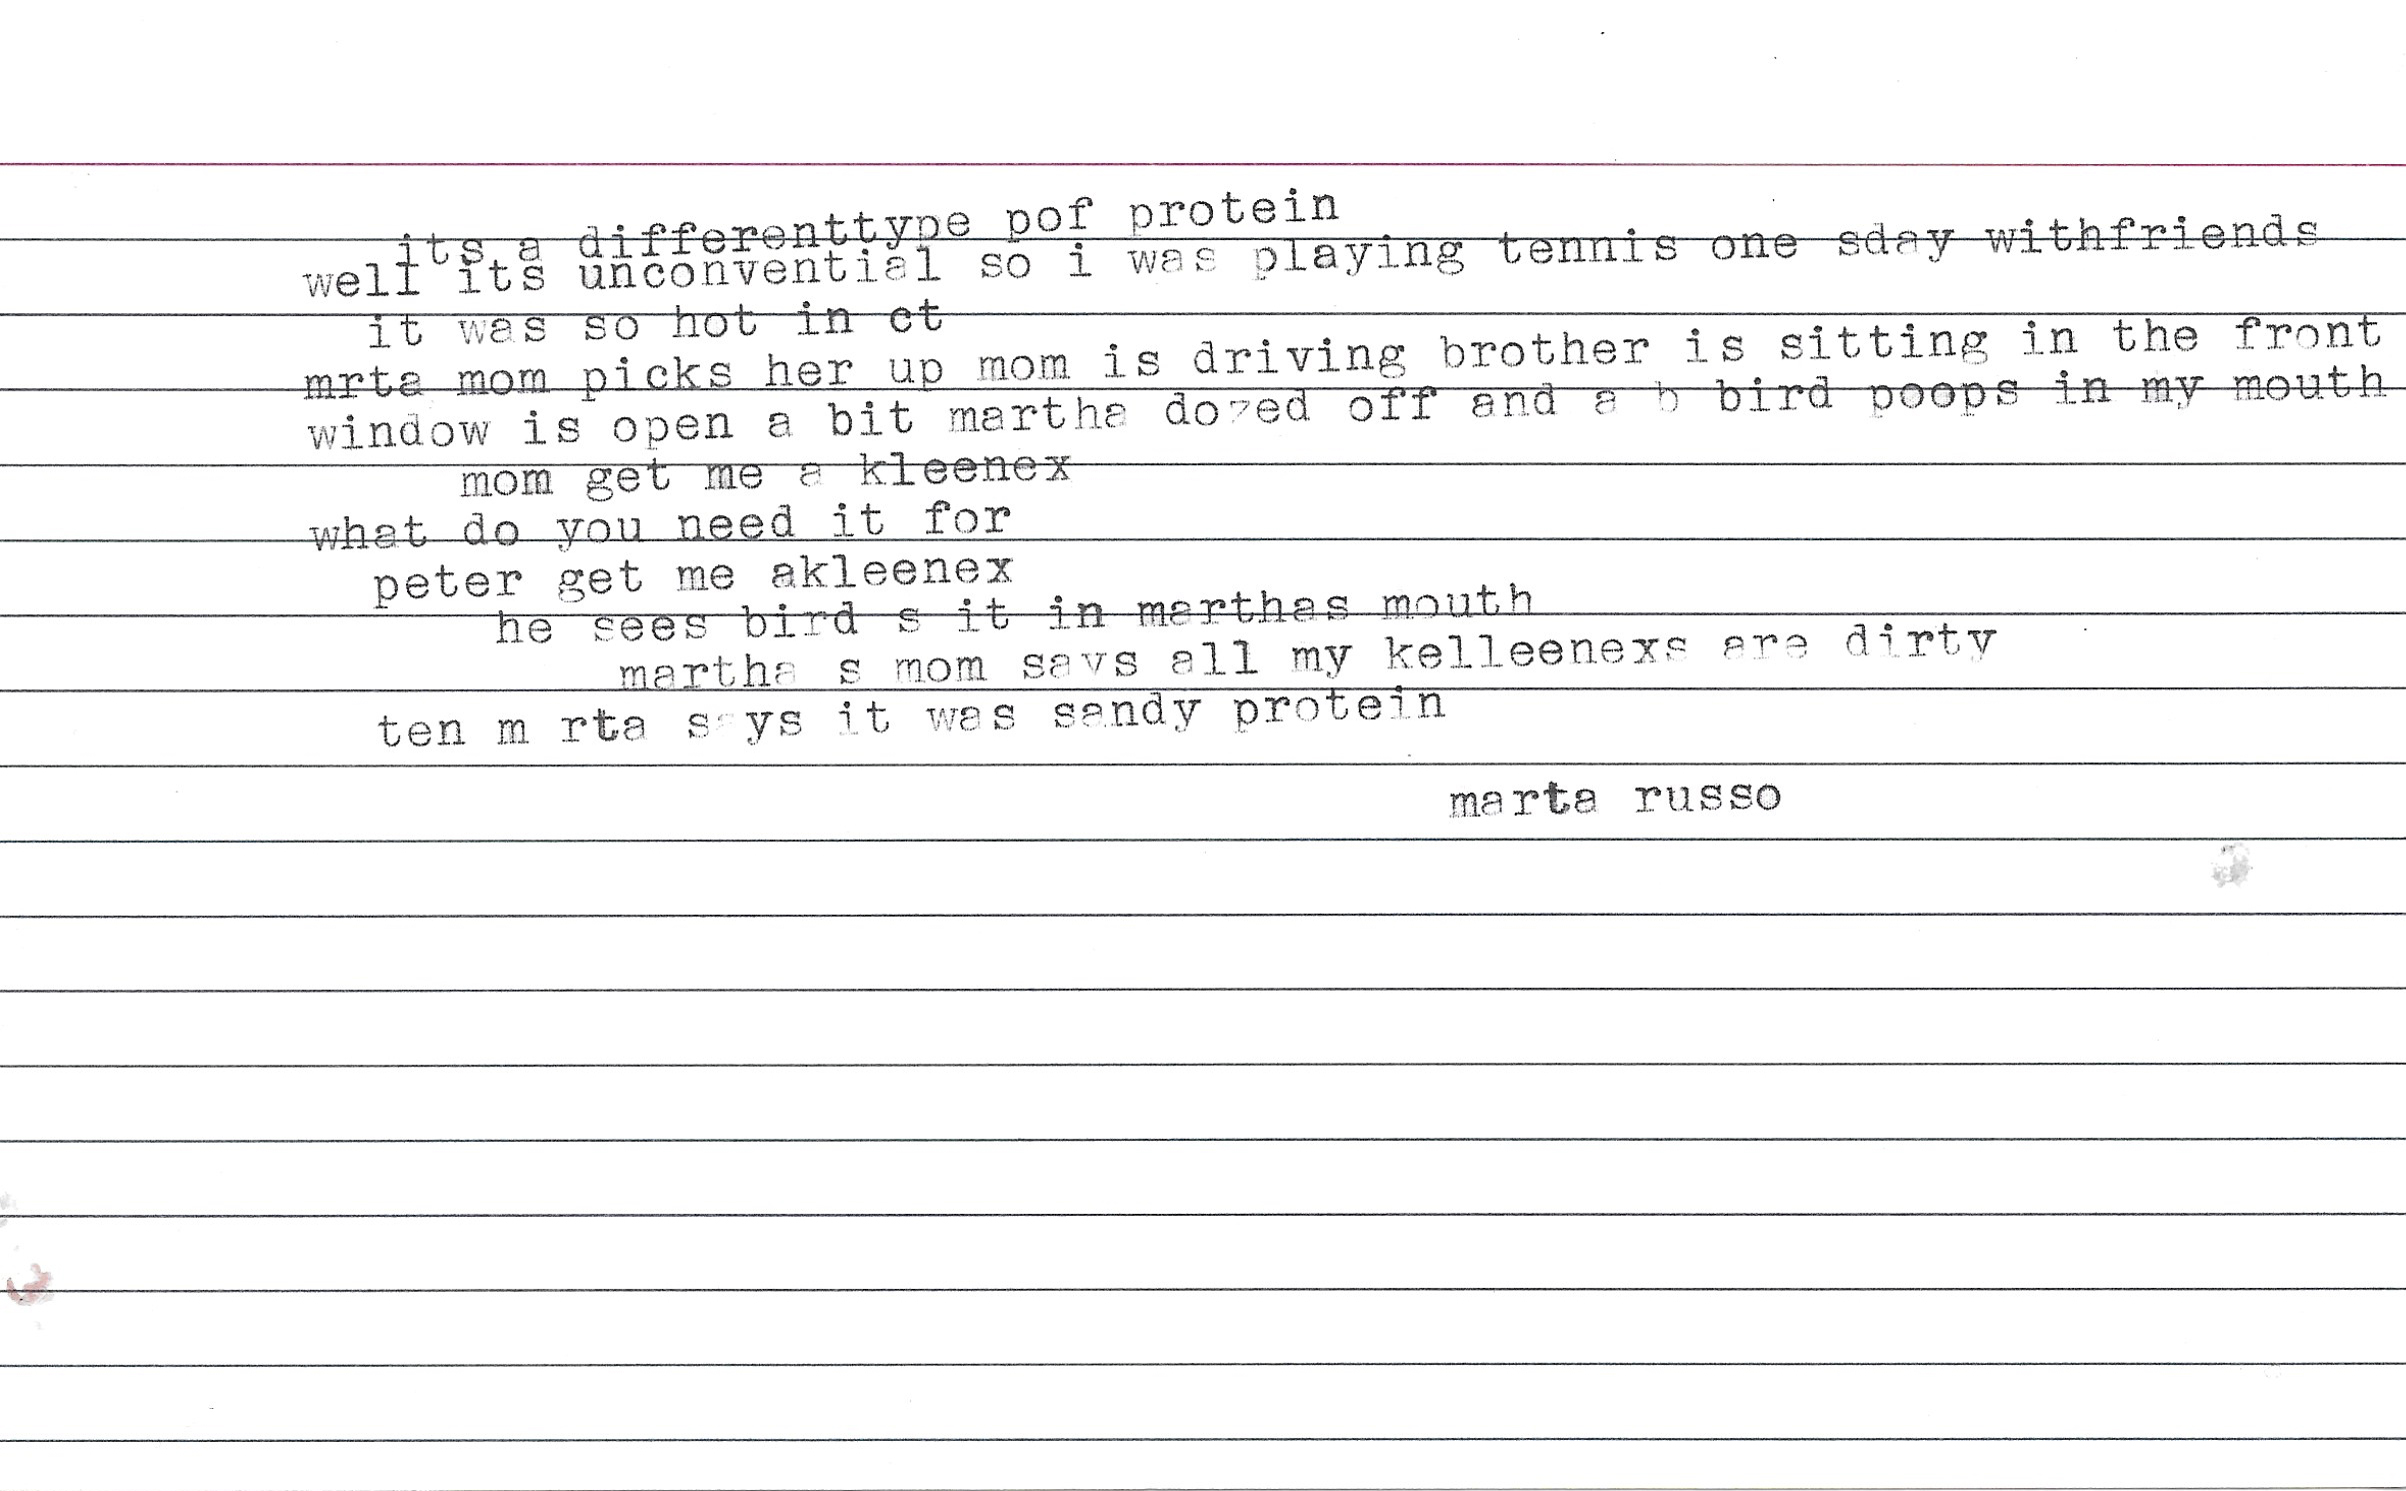 its a differenttype pof protein
well its unconvential so i was playing tennis one sday withfriends
it was so hot in ct
mrta mom picks her up mom is driving brother is sitting in the front
window is open a bit martha dozed off and a b bird poops in my mouth
mom get me a kleenex
what do you need it for
peter get me akleenex
he sees bird s it in marthas mouth
martha s mom says all my kelleenexs are dirty
ten m rta s ys it was sandy protein
marta russo